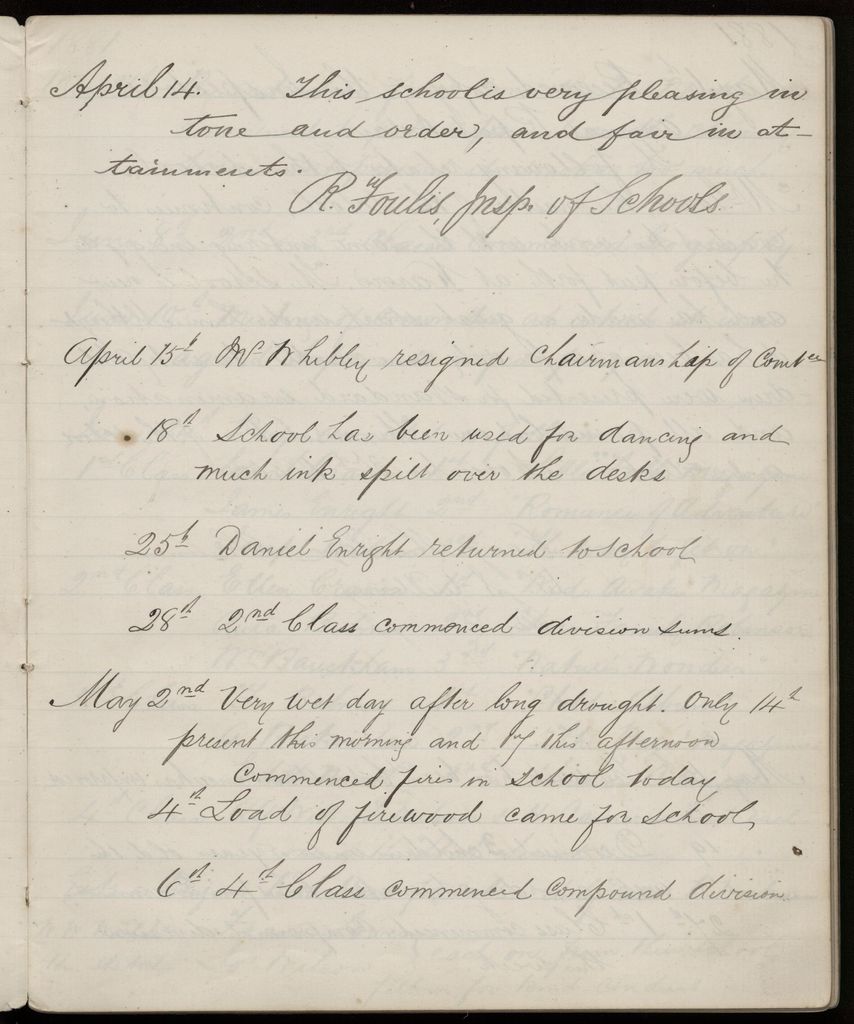 April 14. This school is very pleasing in
tone and order, and fair in at-
tainments.
R. Foulis, Insp. of Schools.
April 15th Mr Whibley resigned Chairmanship of Comtee
18th School has been used for dancing and
much ink spilt over the desks
25th Daniel Enright returned to School
28th 2nd Class commenced division sums.
May 2nd Very wet day after long drought. Only 14th
present this morning and 17 this afternoon
Commenced fires in School today
4th Load of firewood came for School
6th 4th Class commenced Compound division.